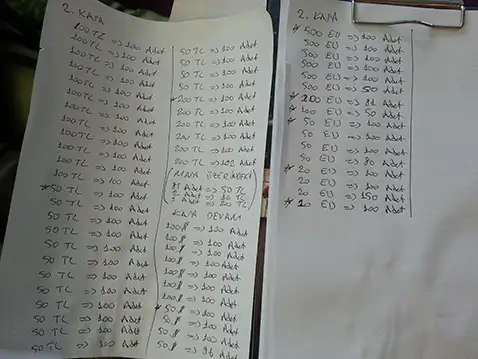 2. KASA
100TL => 100 Adet
100TL => 100 Adet
100TL => 100 Adet
100TL => 100 Adet
100TL => 100 Adet
100TL => 100 Adet
100TL => 100 Adet
100TL => 100 Adet
100TL => 100 Adet
100TL => 100 Adet
100TL => 100 Adet
100TL => 100 Adet
*50 TL => 100 Adet
50 TL => 100 Adet
50 TL => 100 Adet
50 TL => 100 Adet
50 TL => 100 Adet
50 TL => 100 Adet
50 TL => 100 Adet
50 TL => 100 Adet
50 TL => 100 Adet
50 TL => 100 Adet
50 TL => 100 Adet
50 TL => 100 Adet
50 TL => 100 Adet
50 TL => 100 Adet
50 TL => 100 Adet
*200TL => 100 Adet
200TL => 100 Adet
200TL => 100 Adet
200 TL => 100 Adet
200TL => 102 Adet
(MASA ÜZERİNDEKİ
Adet => 50 TL
2 Adet => 10 TL
KASA DEVAMI
100$ => 100 Adet
100$ => 100 Adet
100$ => 100 Adet
100$ => 100 Adet
100$ => 100 Adet
100$ => 100 Adet
*50$ => 100 Adet
50$ => 100 Adet
50$ => 100 Adet
50$ => 96 Adet
2. KASA
*500 EU => 100 Adet
500 EU => 100 Adet
500 EU => 100 Adet
500 EU => 100 Adet
500 EU => 100 Adet
500 EU => 50 Adet
EU => 91 Adet
*100 EU => 50 Adet
*50 EU => 100 Adet
50 EU => 100 Adet
50 EU => 100 Adet
50 EU => 80 Adet
*20 EU => 100 Adet
20 EU => 100 Adet
20 EU => 150 Adet
*10 EU => 100 Adet